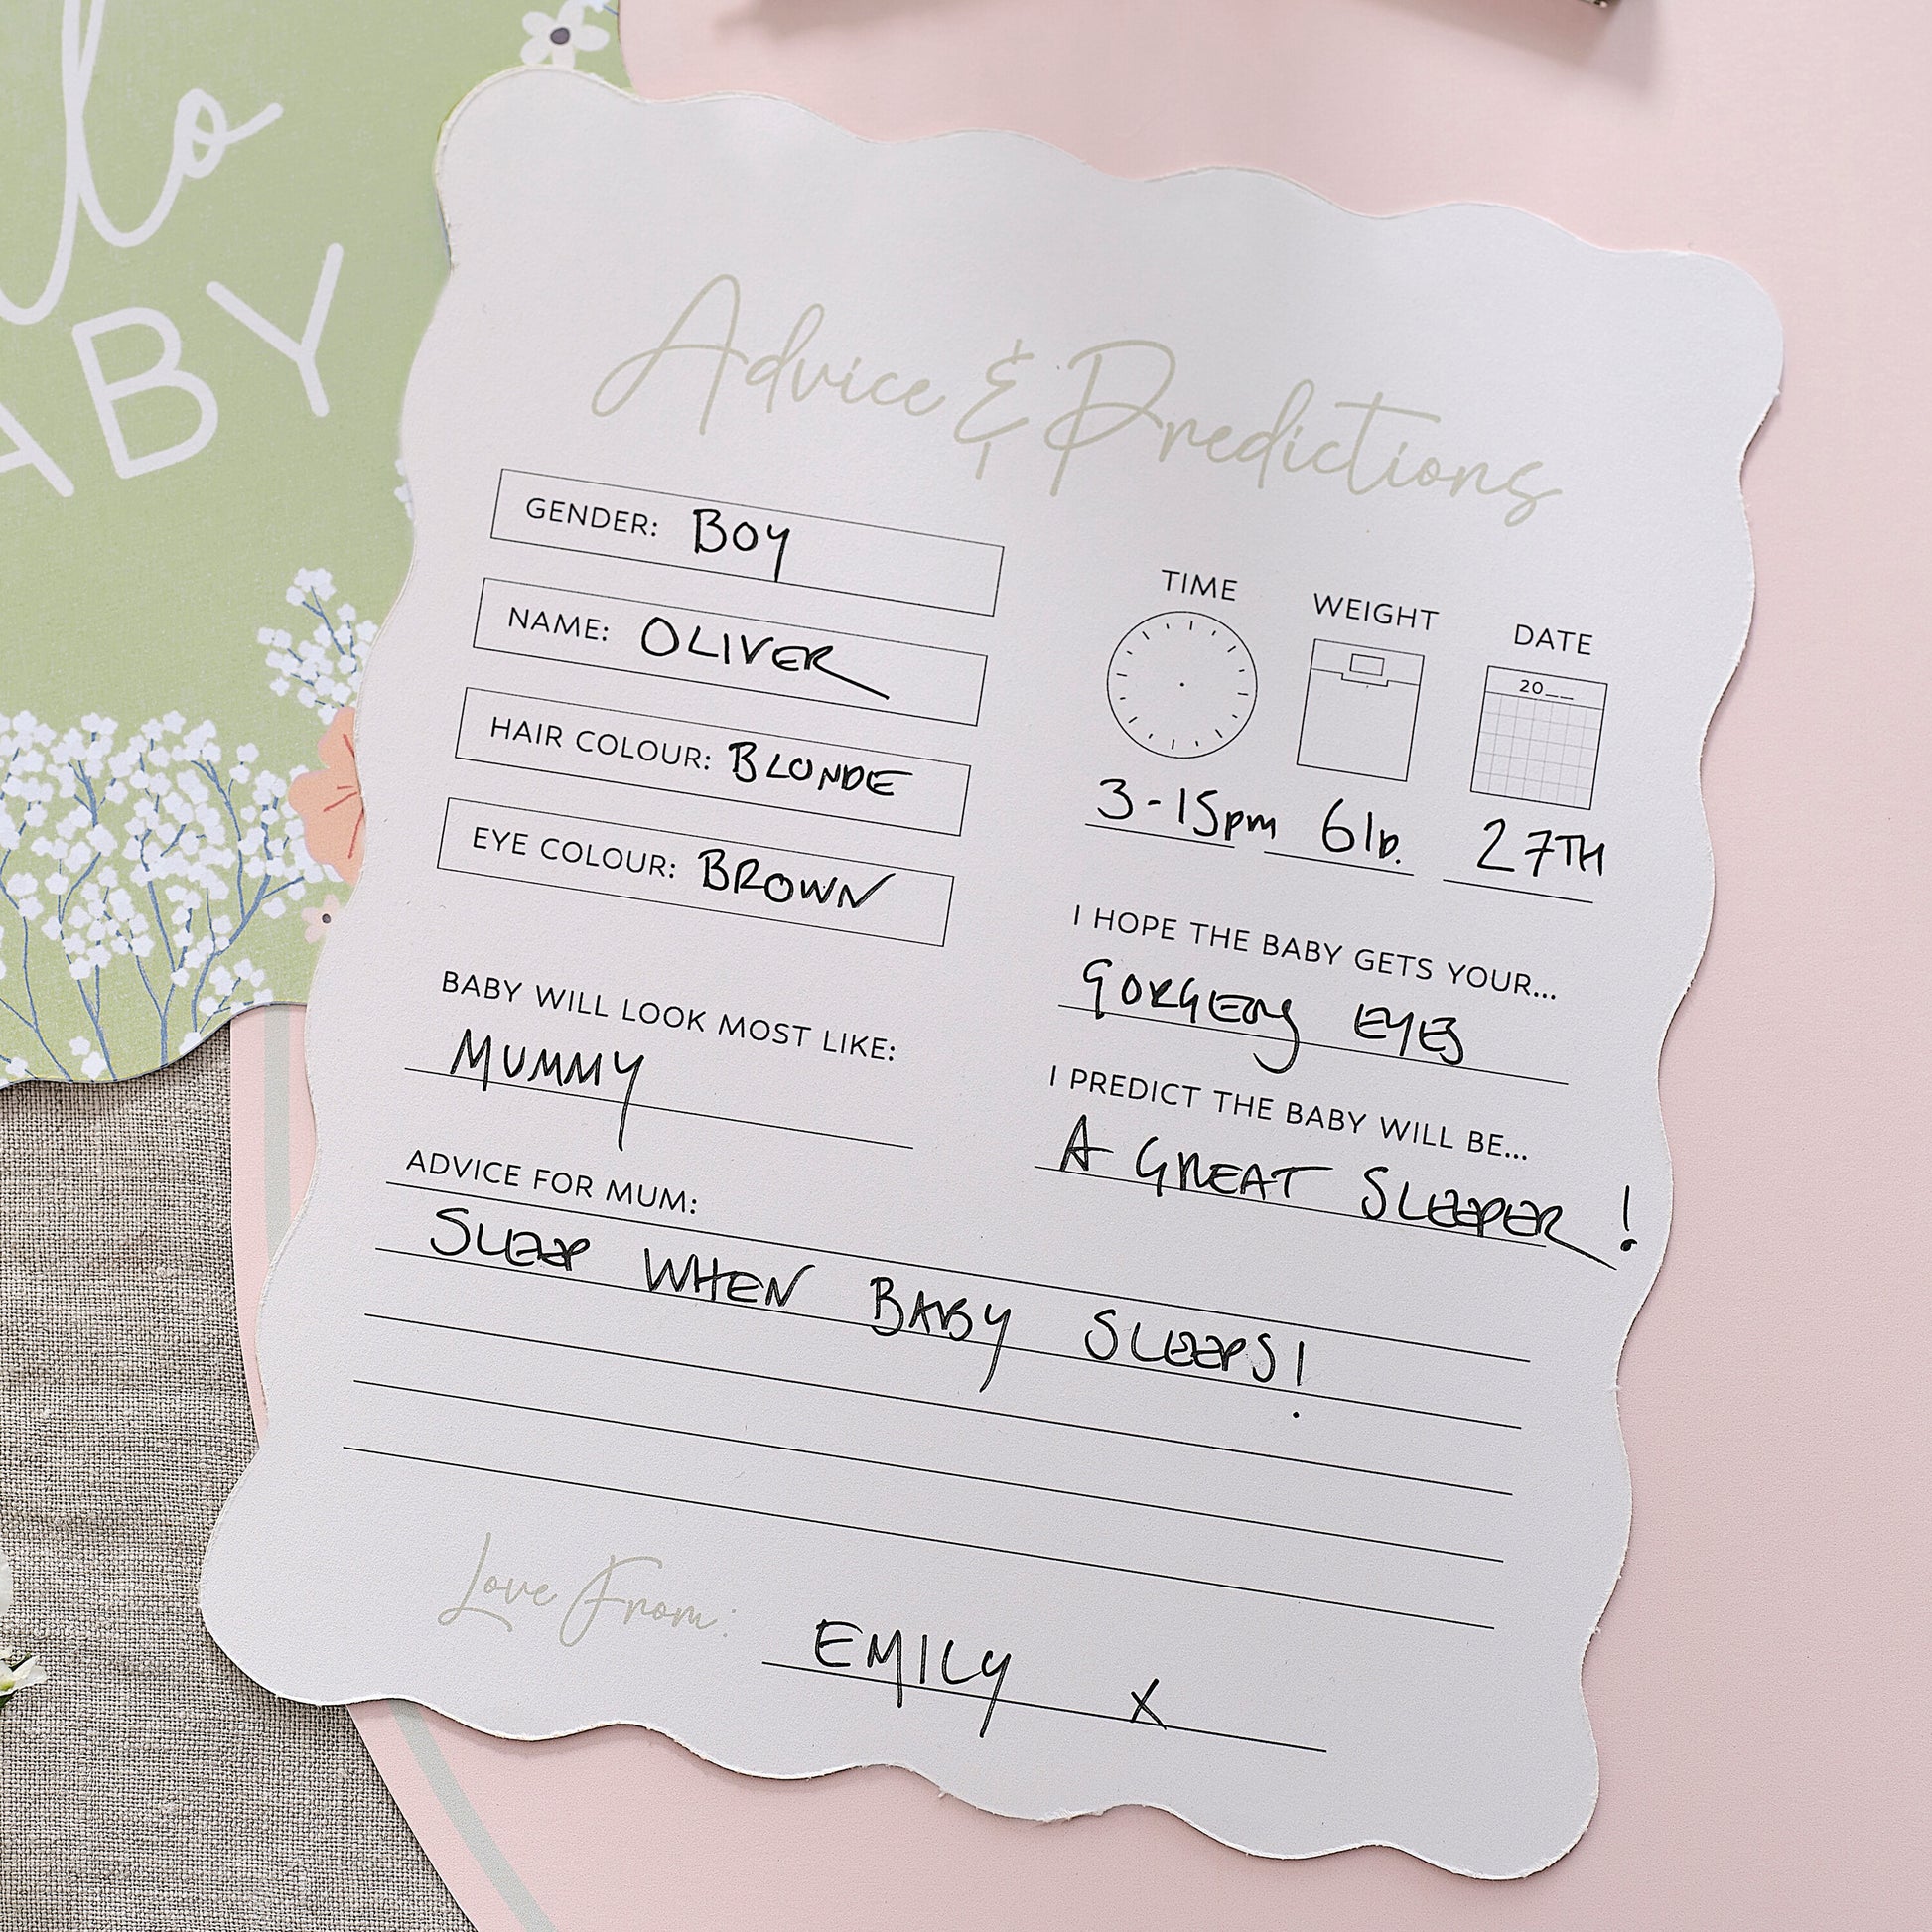 lo
ABY
Advice & Predictions
GENDER: BOY
NAME: OLIVER
HAIR COLOUR: BLONDE
EYE COLOUR: BROWN
TIME WEIGHT DATE
20__
3-15pm 6lb. 27TH
I HOPE THE BABY GETS YOUR...
GORGEOUS EYES
BABY WILL LOOK MOST LIKE:
MUMMY
I PREDICT THE BABY WILL BE...
A GREAT SLEEPER!
ADVICE FOR MUM:
SLEEP WHEN BABY SLEEPS!
Love From: EMILY X